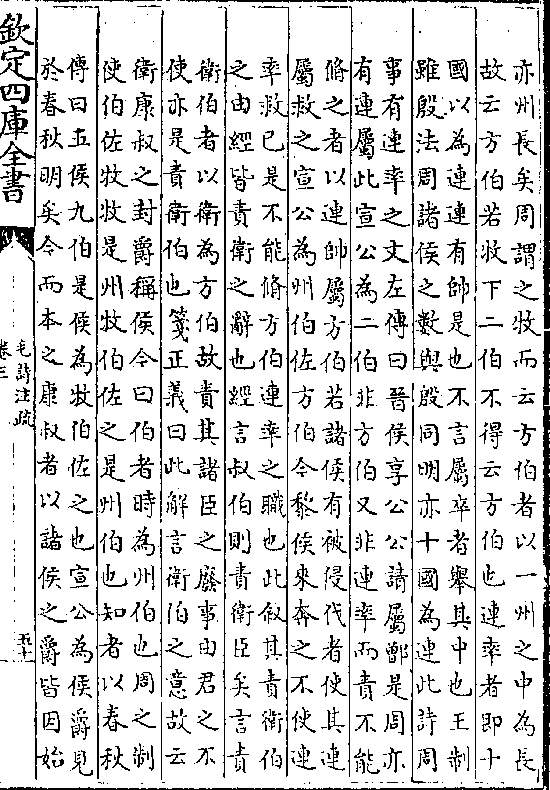 亦州長矣周謂之牧而云方伯者以一州之中為長
故云方伯若牧下二伯不得云方伯也連率者即十
國以為連連有帥是也不言屬卒者舉其中也王制
雖殷法周諸侯之數與殷同明亦十國為連此詩周
事有連率之文左傳曰晉侯享公公請屬鄫是周亦
有連屬此宣公為二伯非方伯又非連率而責不能
脩之者以連帥屬方伯若諸侯有被侵伐者使其連
屬救之宣公為州伯佐方伯今黎侯來奔之不使連
率救已是不能脩方伯連率之職也此叙其責衛伯
之由經皆責衛之辭也經言叔伯則責衛臣矣言責
衛伯者以衛為方伯故責其諸臣之廢事由君之不
使亦是責衛伯也箋正義曰此解言衛伯之意故云
衛康叔之封爵稱侯今曰伯者時為州伯也周之制
使伯佐牧牧是州牧伯佐之是州伯也知者以春秋
傳曰五侯九伯是侯為牧伯佐之也宣公為侯爵見
於春秋明矣今而本之康叔者以諸侯之爵皆因始
欽定四庫全書
毛詩注疏
卷三